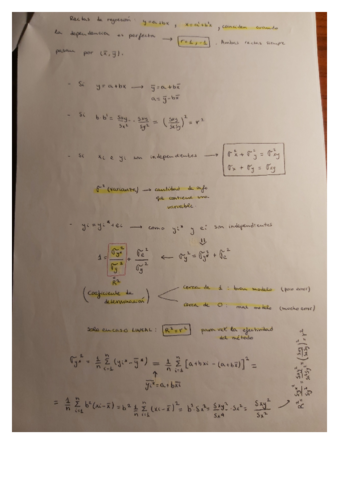 Rectas de regresión: y=a+bx , x=a'+b'x, coinciden cuando
la dependencia es perfecta → r=1 ó -1. Ambas rectas
pasan por (x̄, ȳ).
- Si y=a+bx → ȳ=a+bx̄
a=ȳ-bx̄
- Si b·b' = Sxy/Sx² · Sxy/Sy² = (Sxy/SxSy)² = r²
- Si xi e yi son independientes →
S² (varianza) → cantidad de info
que contiene una
variable
- yi = yi* + ei → como yi* y ei son independientes
1 = Sy*²/Sy² + Se²/Sy² ← Sy² = Sy*² + Se²
R²
(Coeficiente de determinación)
cerca de 1: buen modelo (poco error)
cerca de 0: mal modelo (mucho error)
Solo en caso lineal: R²=r² para ver la efectividad
del método
Sy*² = 1/n Σ (yi* - ȳ*)² = 1/n Σ [a+bxi - (a+bx̄)]² =
ȳ* = a+bx̄
= 1/n Σ b²(xi-x̄)² = b² 1/n Σ (xi-x̄)² = b² Sx² = Sxy²/Sx⁴ · Sx² = Sxy²/Sx²